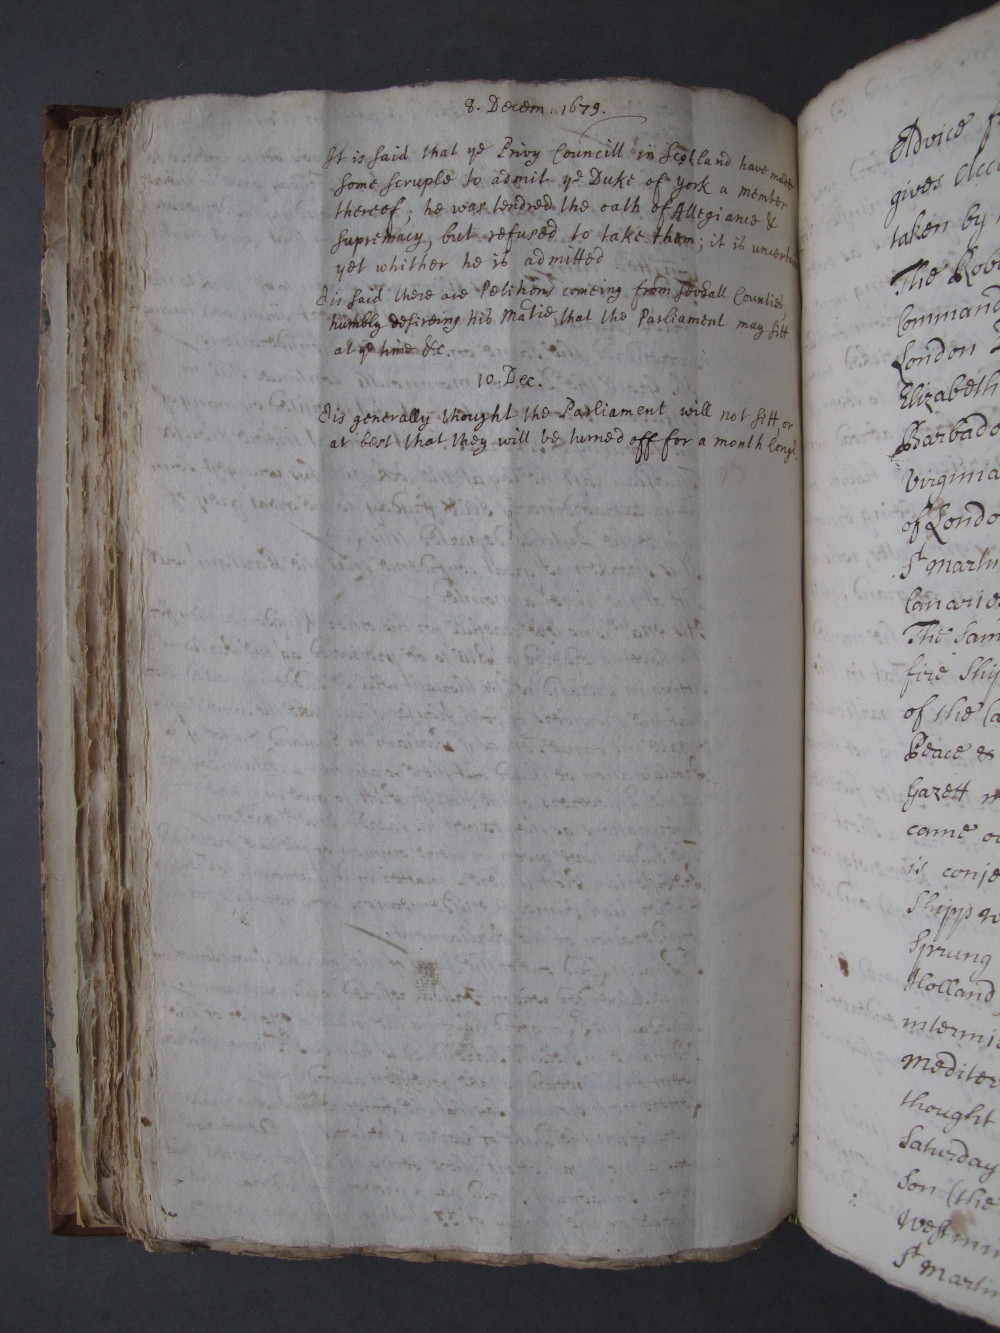 8. Decem. 1679.
It is said that ye Privy Councill in Scotland have made
some scruple to admit ye Duke of York a member
thereof; he was tendred the oath of Allegiance &
supremacy, but refused to take them; it is uncertain
yet whither he is admitted
Tis said there are Petitions comeing from severall Counties,
humbly desireing his Matie that the Parliament may sitt
at ye time &c.
10. Dec.
Tis generally thought the Parliament will not sitt, or
at best that they will be turned off for a month longer
Advice
gives
taken by
The
Command
London
Elizabeth
Barbado
Virginia
of London
St Martin
Canaries
The Sam
fire ship
of the
Peace &
Gazett
came
is conje
Shipp
sprung
Holland
intermi
Mediter
thought
Saturday
son (the
Westmin
St Martin